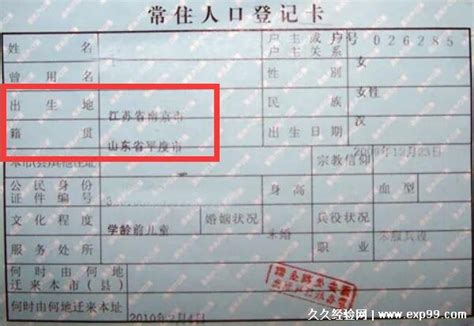 常住人口登记卡
姓 名 户主或 户主 026285
曾用名 性别 女
女性
出生地 江苏省南京市 民族
汉
籍贯 山东省平度市 出生日期
2006年12月23日
本市(县)其他住址 宗教信仰
公民身份证件编号 3 身高 血型
文化程度 学龄前儿童 婚姻状况 未婚 兵役状况 未服兵役
服务处所 职业
何时由何地迁来本市(县)
何时由何地迁来本址 2010年2月4日
久久经验网 | www.exp99.com